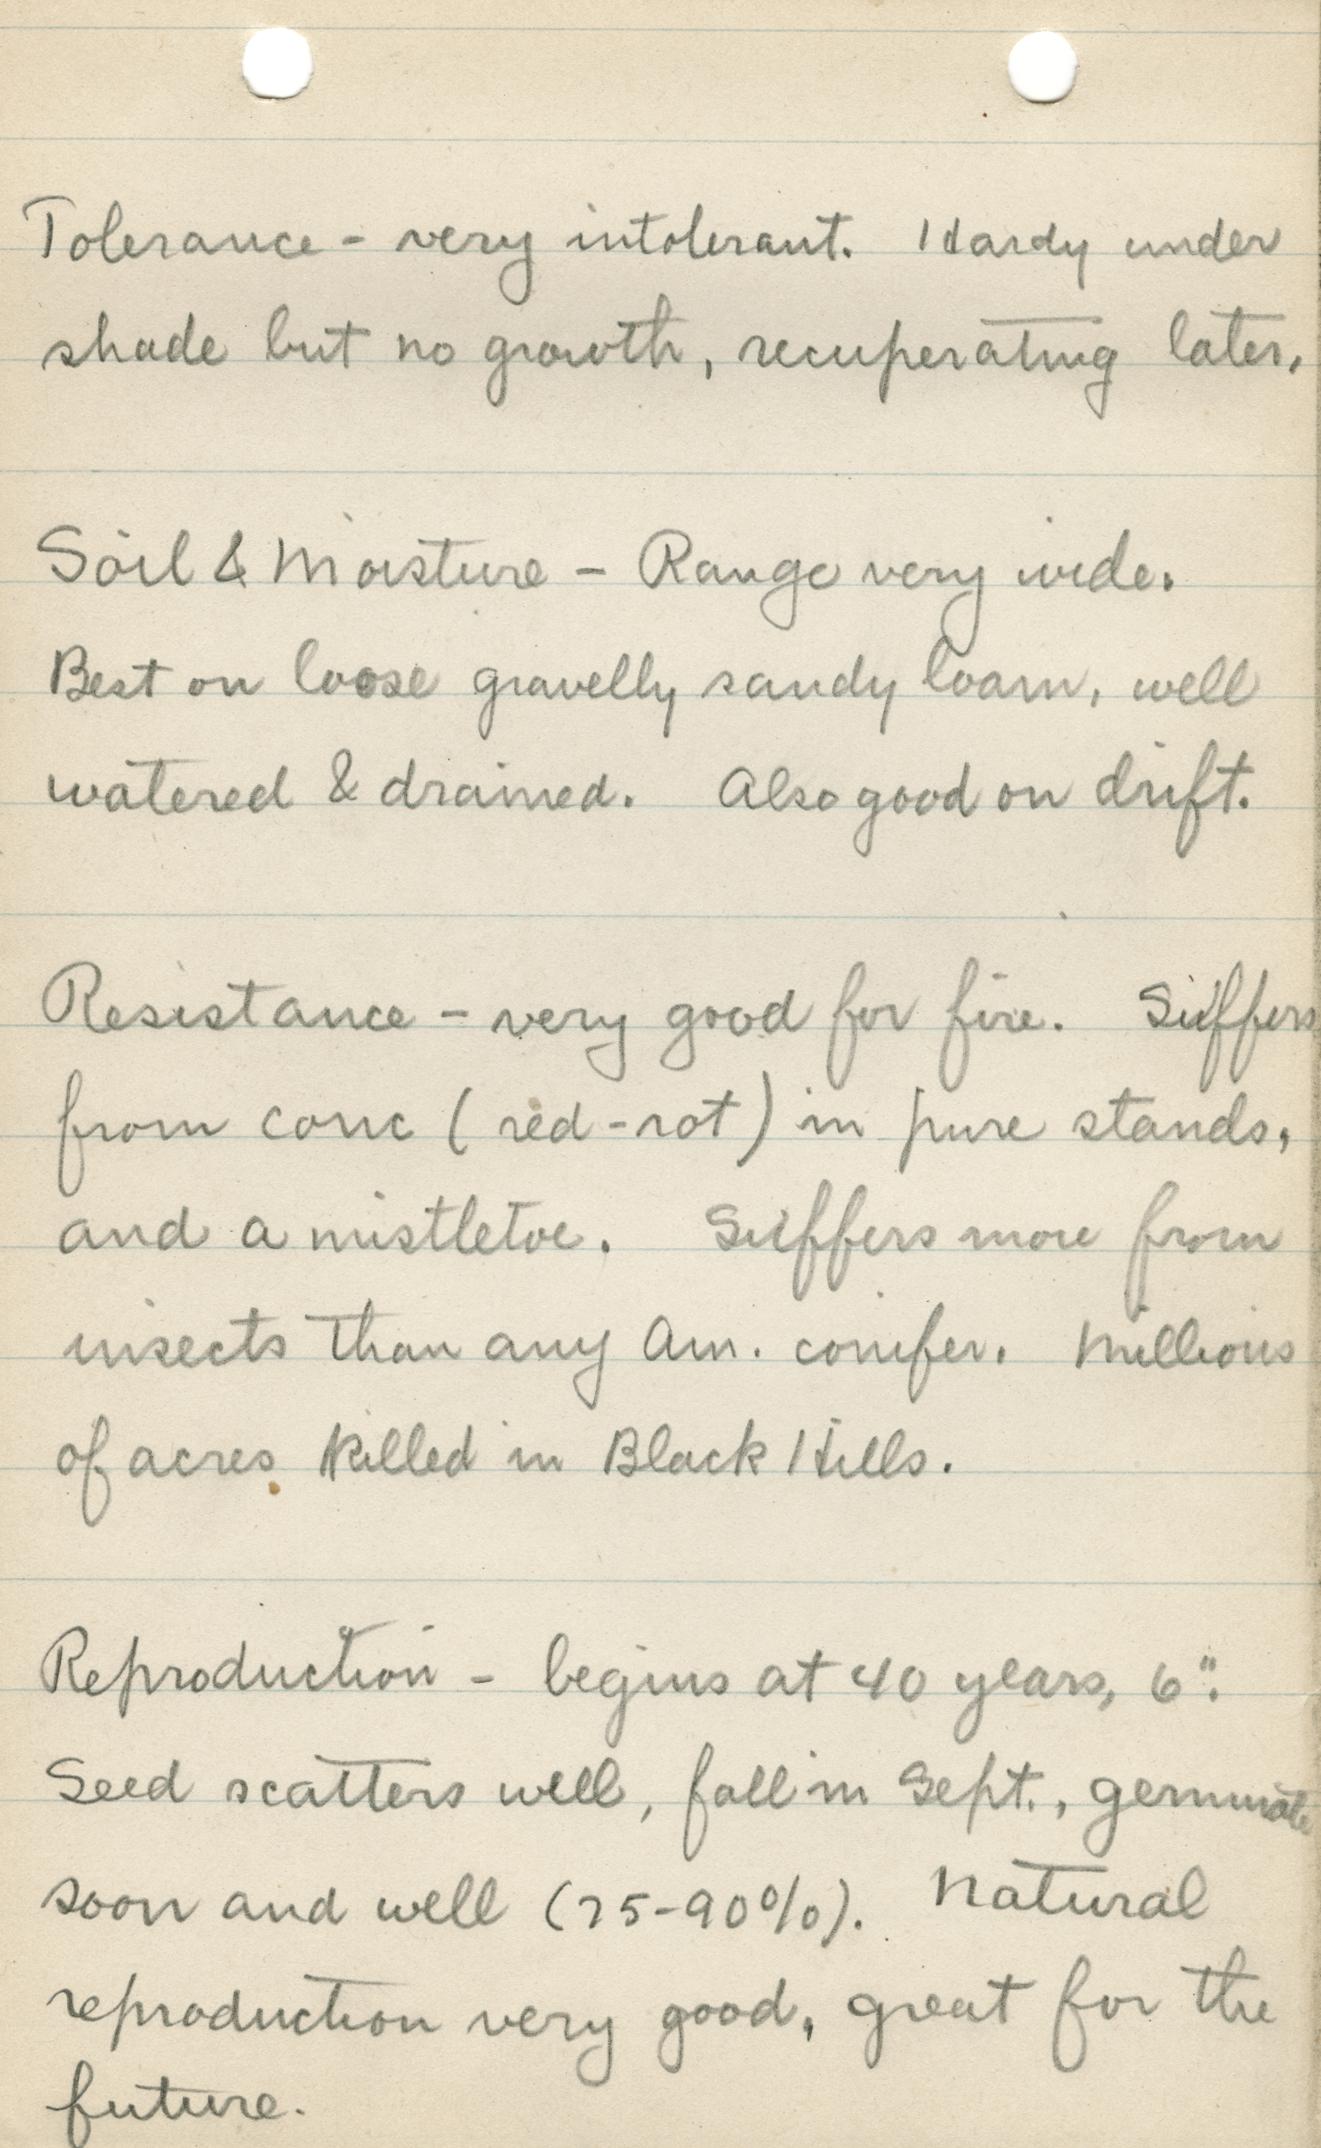 Tolerance - very intolerant. Hardy under
shade but no growth, recuperating later.
Soil & Moisture - Range very wide.
Best on loose gravelly sandy loam, well
watered & drained. Also good on drift.
Resistance - very good for fire. Suffers
from conc (red-rot) in pure stands,
and a mistletoe. Suffers more from
insects than any Am. conifer. Millions
of acres killed in Black Hills.
Reproduction - begins at 40 years, 6".
Seed scatters well, fall in Sept., germinate
soon and well (75-90%). Natural
reproduction very good, great for the
future.